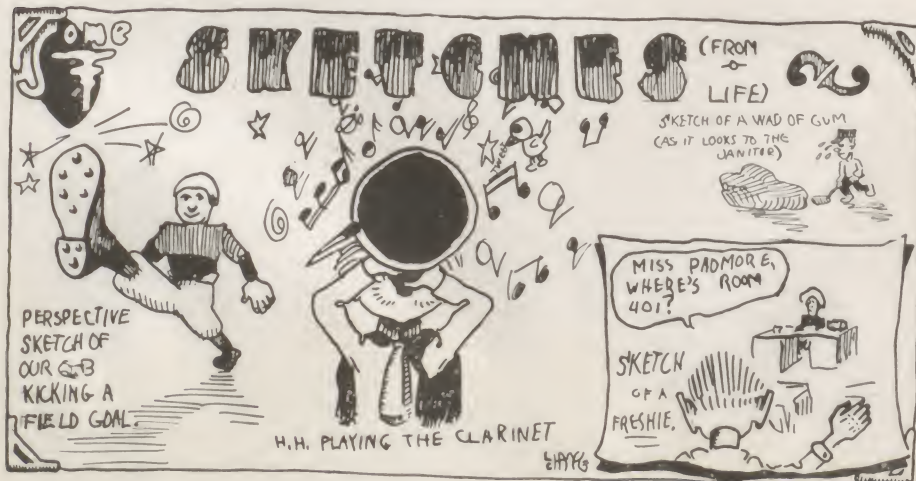 SOME SKETCHES (FROM
LIFE)
SKETCH OF A WAD OF GUM
(AS IT LOOKS TO THE
JANITOR)
TWEET
PERSPECTIVE
SKETCH OF
OUR QB
KICKING A
FIELD GOAL.
H.H. PLAYING THE CLARINET
MISS PADMORE,
WHERE'S ROOM
401?
SKETCH
OF A
FRESHIE.